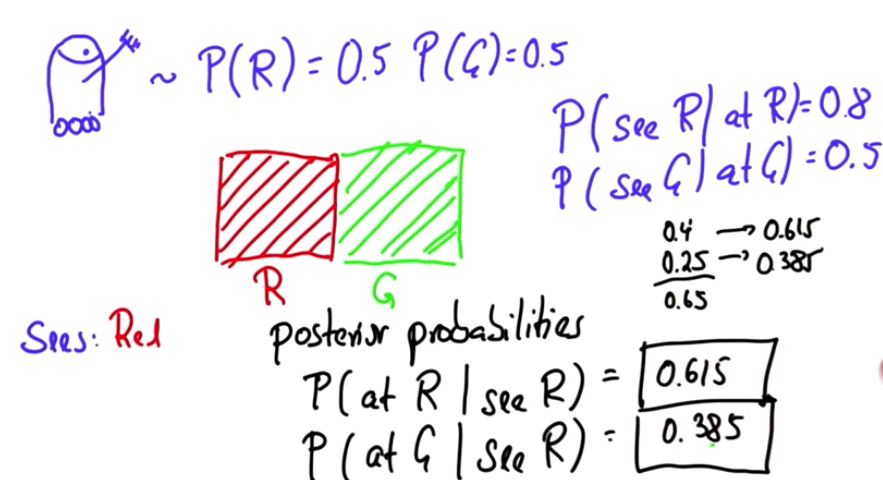 ~ P(R) = 0.5 P(G) = 0.5
P(see R | at R) = 0.8
P(see G | at G) = 0.5
0.4 → 0.615
0.25 → 0.385
0.65
R G
Sees: Red
posterior probabilities
P(at R | see R) = 0.615
P(at G | see R) = 0.385